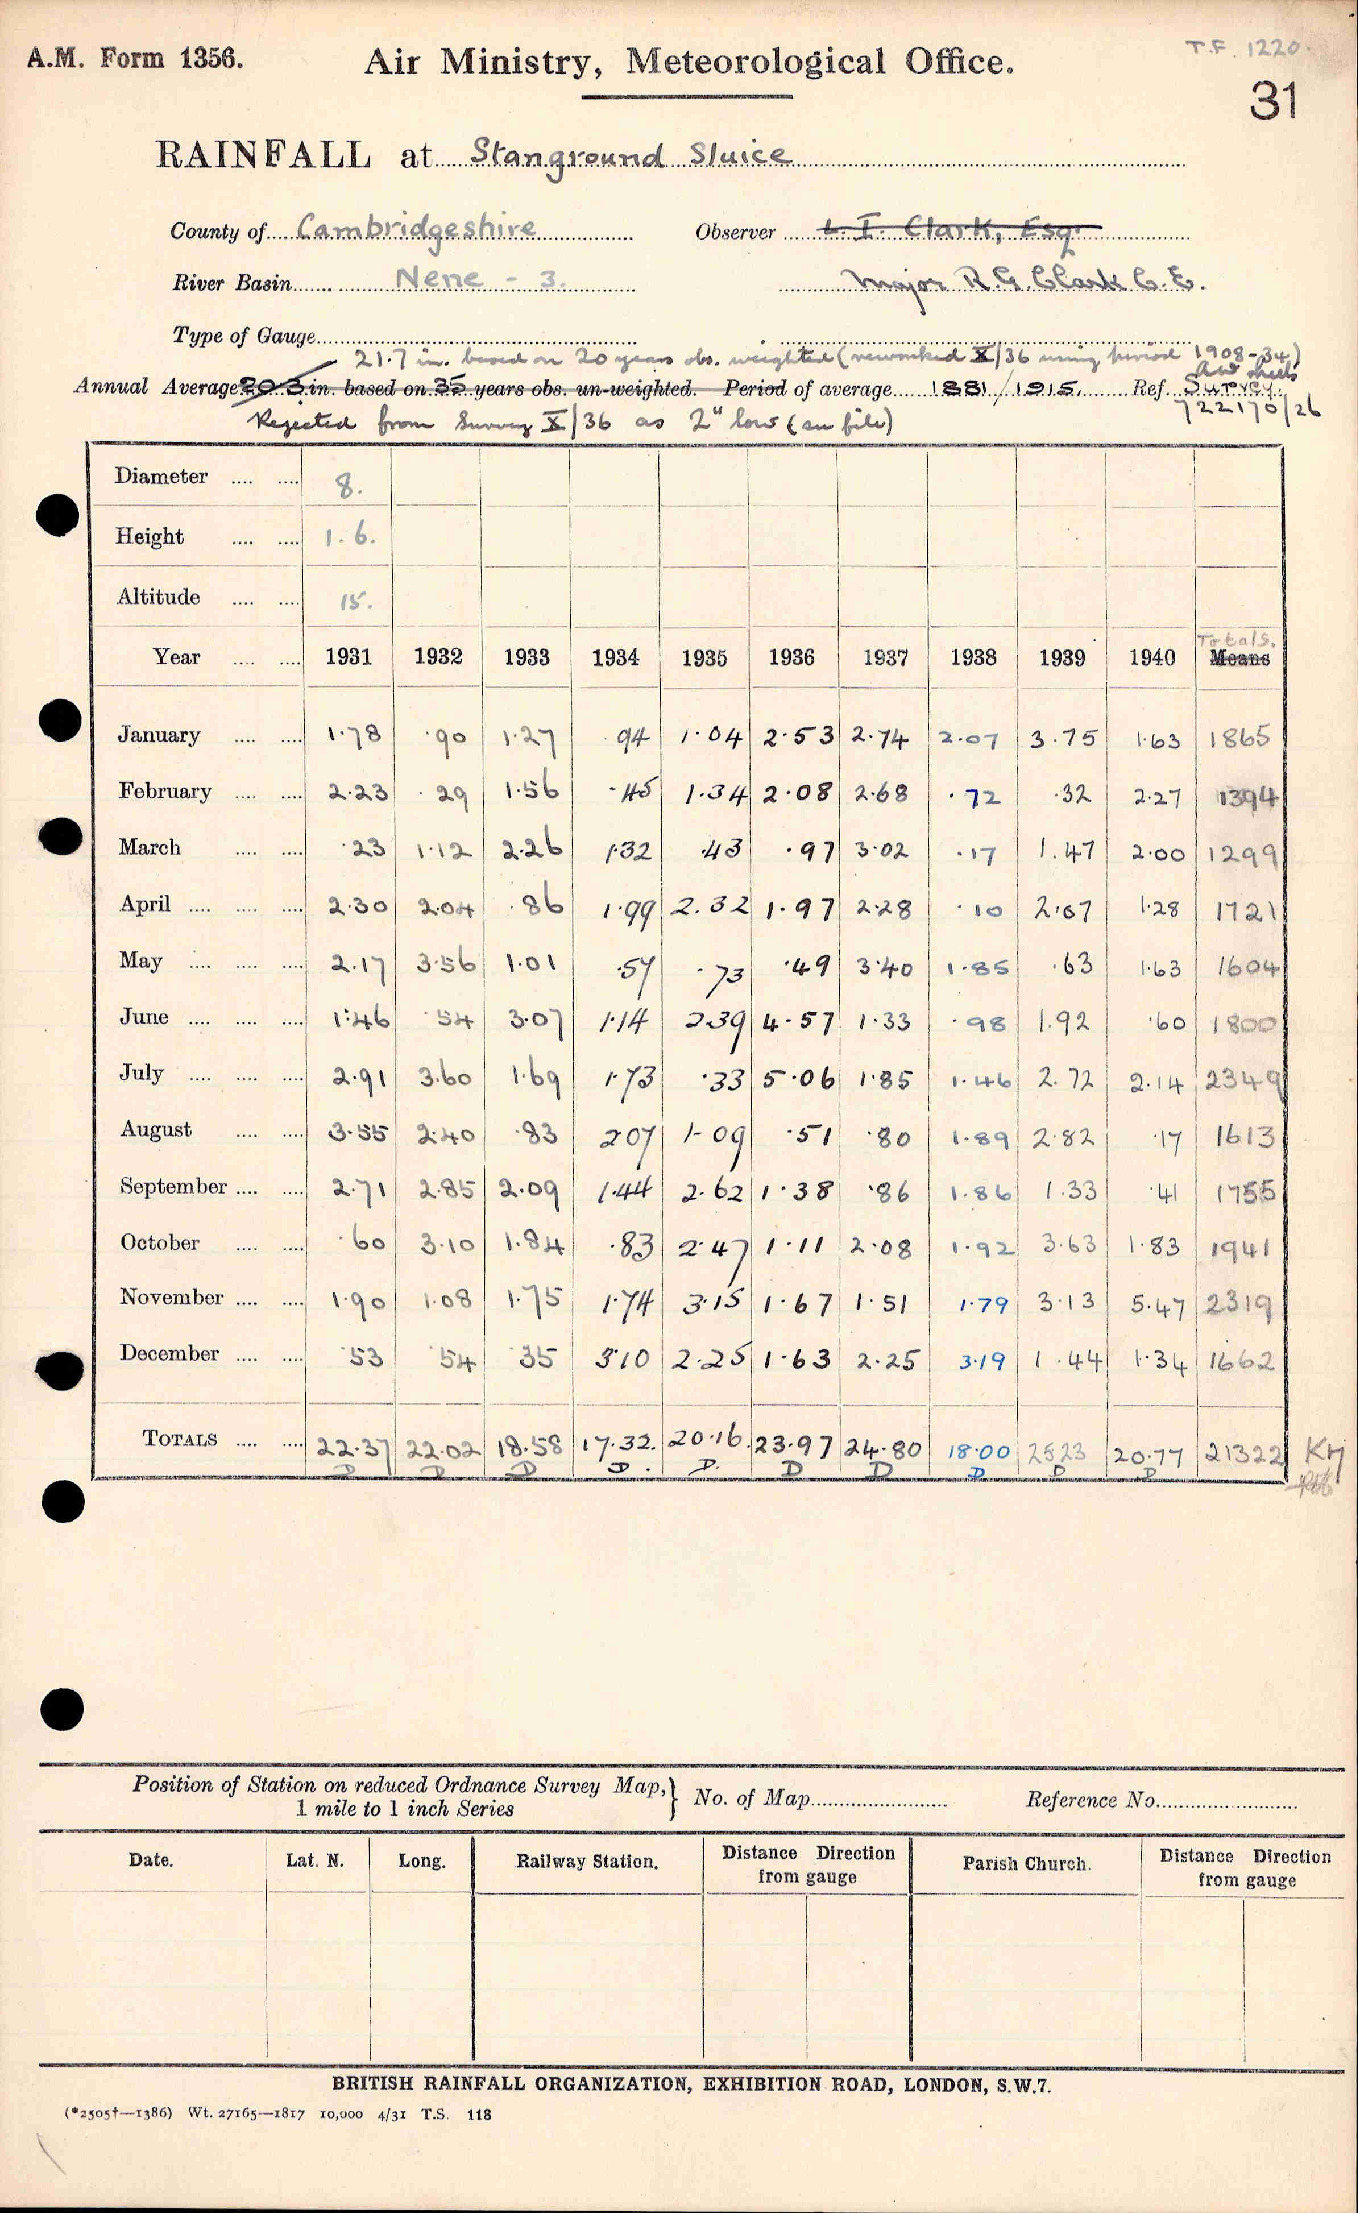 T.F. 1220.
A.M. Form 1356.
Air Ministry, Meteorological Office.
31
RAINFALL at Stanground Sluice
County of Cambridgeshire Observer L. I. Clark, Esq.
River Basin Nene - 3. Major R.G. Clark C.E.
Type of Gauge
21.7 in. based on 20 years obs. weighted (reworked X/36 using period 1908-34)
Annual Average 20.3 in. based on 35 years obs. un-weighted. Period of average 1881/1915. Ref. Survey.
722170/26
Rejected from Survey X/36 as 2" low (see file)
Diameter 8.
Height 1.6.
Altitude 15.
Totals.
Year 1931 1932 1933 1934 1935 1936 1937 1938 1939 1940 Means
January 1.78 .90 1.27 .94 1.04 2.53 2.74 2.07 3.75 1.63 1865
February 2.23 .29 1.56 .45 1.34 2.08 2.68 .72 .32 2.27 1394
March .23 1.12 2.26 1.32 .43 .97 3.02 .17 1.47 2.00 1299
April 2.30 2.04 .86 1.99 2.32 1.97 2.28 .10 2.07 1.28 1721
May 2.17 3.56 1.01 .57 .73 .49 3.40 1.85 .63 1.63 1604
June 1.46 .54 3.07 1.14 2.39 4.57 1.33 .98 1.92 .60 1800
July 2.91 3.60 1.69 1.73 .33 5.06 1.85 1.46 2.72 2.14 2349
August 3.55 2.40 .83 2.07 1.09 .51 .80 1.89 2.82 .17 1613
September 2.71 2.85 2.09 1.44 2.62 1.38 .86 1.86 1.33 .41 1755
October .60 3.10 1.84 .83 2.47 1.11 2.08 1.92 3.63 1.83 1941
November 1.90 1.08 1.75 1.74 3.15 1.67 1.51 1.79 3.13 5.47 2319
December .53 .54 .35 3.10 2.25 1.63 2.25 3.19 1.44 1.34 1662
TOTALS 22.37 22.02 18.58 17.32 20.16 23.97 24.80 18.00 25.23 20.77 21322
D D D D D D D D D D
Position of Station on reduced Ordnance Survey Map,
1 mile to 1 inch Series } No. of Map Reference No.
Date. Lat. N. Long. Railway Station. Distance Direction from gauge Parish Church. Distance Direction from gauge
BRITISH RAINFALL ORGANIZATION, EXHIBITION ROAD, LONDON, S.W.7.
(*2505†—1386) Wt. 27165—1817 10,000 4/31 T.S. 118